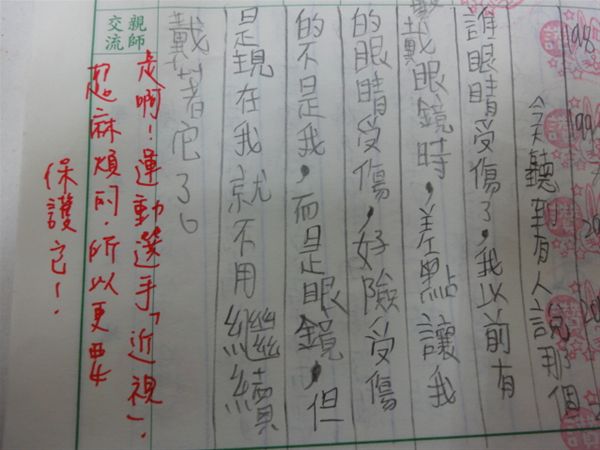 198
199
今天聽到有人說那個
誰眼睛受傷了，我以前有
戴眼鏡時，差點讓我
的眼睛受傷，好險受傷
的不是我，而是眼鏡，但
是現在我就不用繼續
戴著它了。
親師
交流
是啊！運動選手「近視」，
超麻煩的，所以更要
保護它！